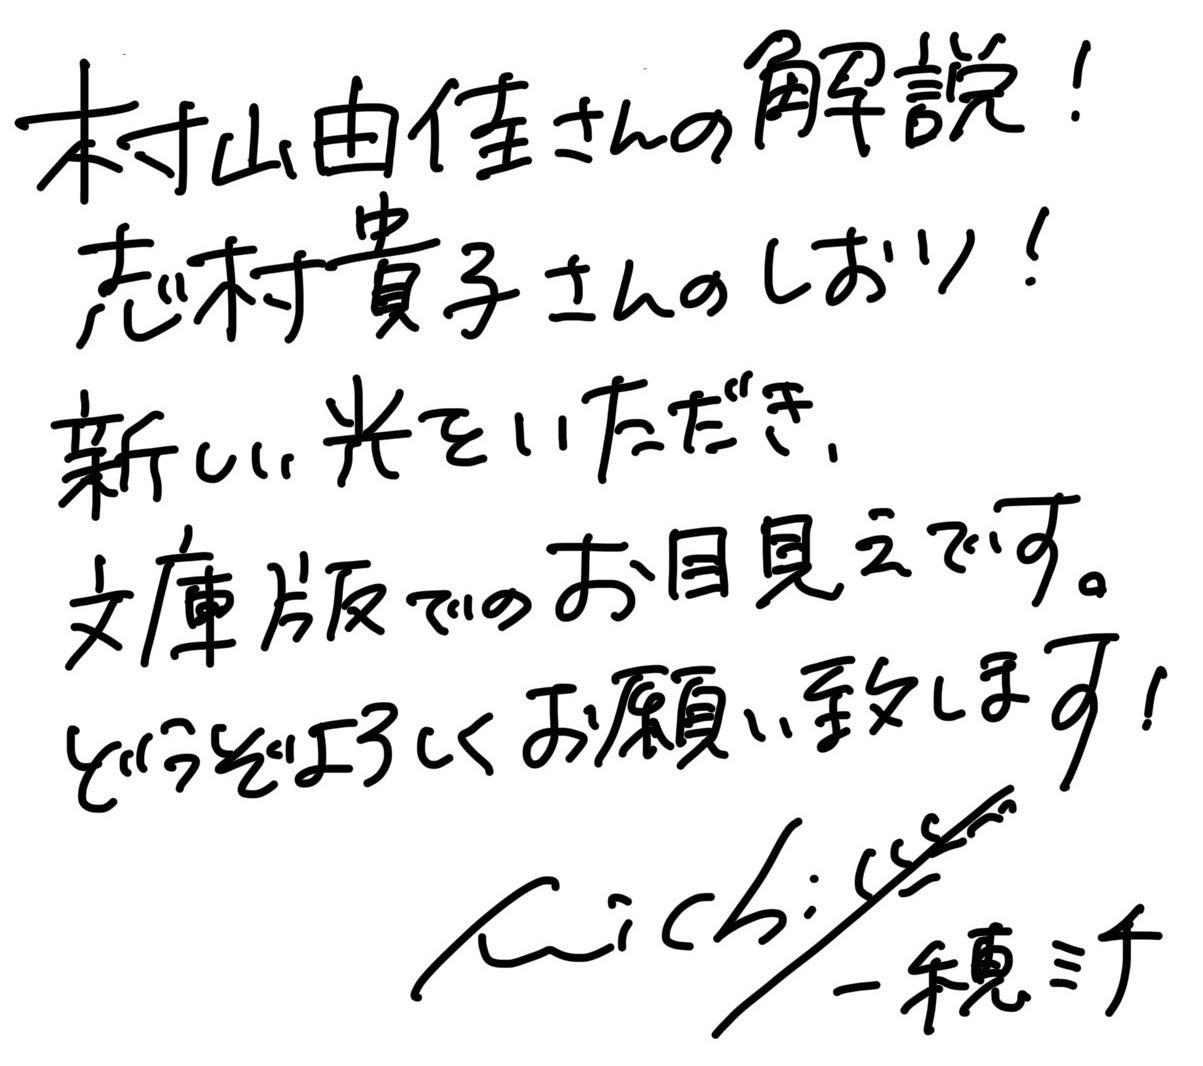 村山由佳さんの解説！
志村貴子さんのしおり！
新しい光をいただき、
文庫版でのお目見えです。
どうぞよろしくお願い致します！
michi
一穂ミチ